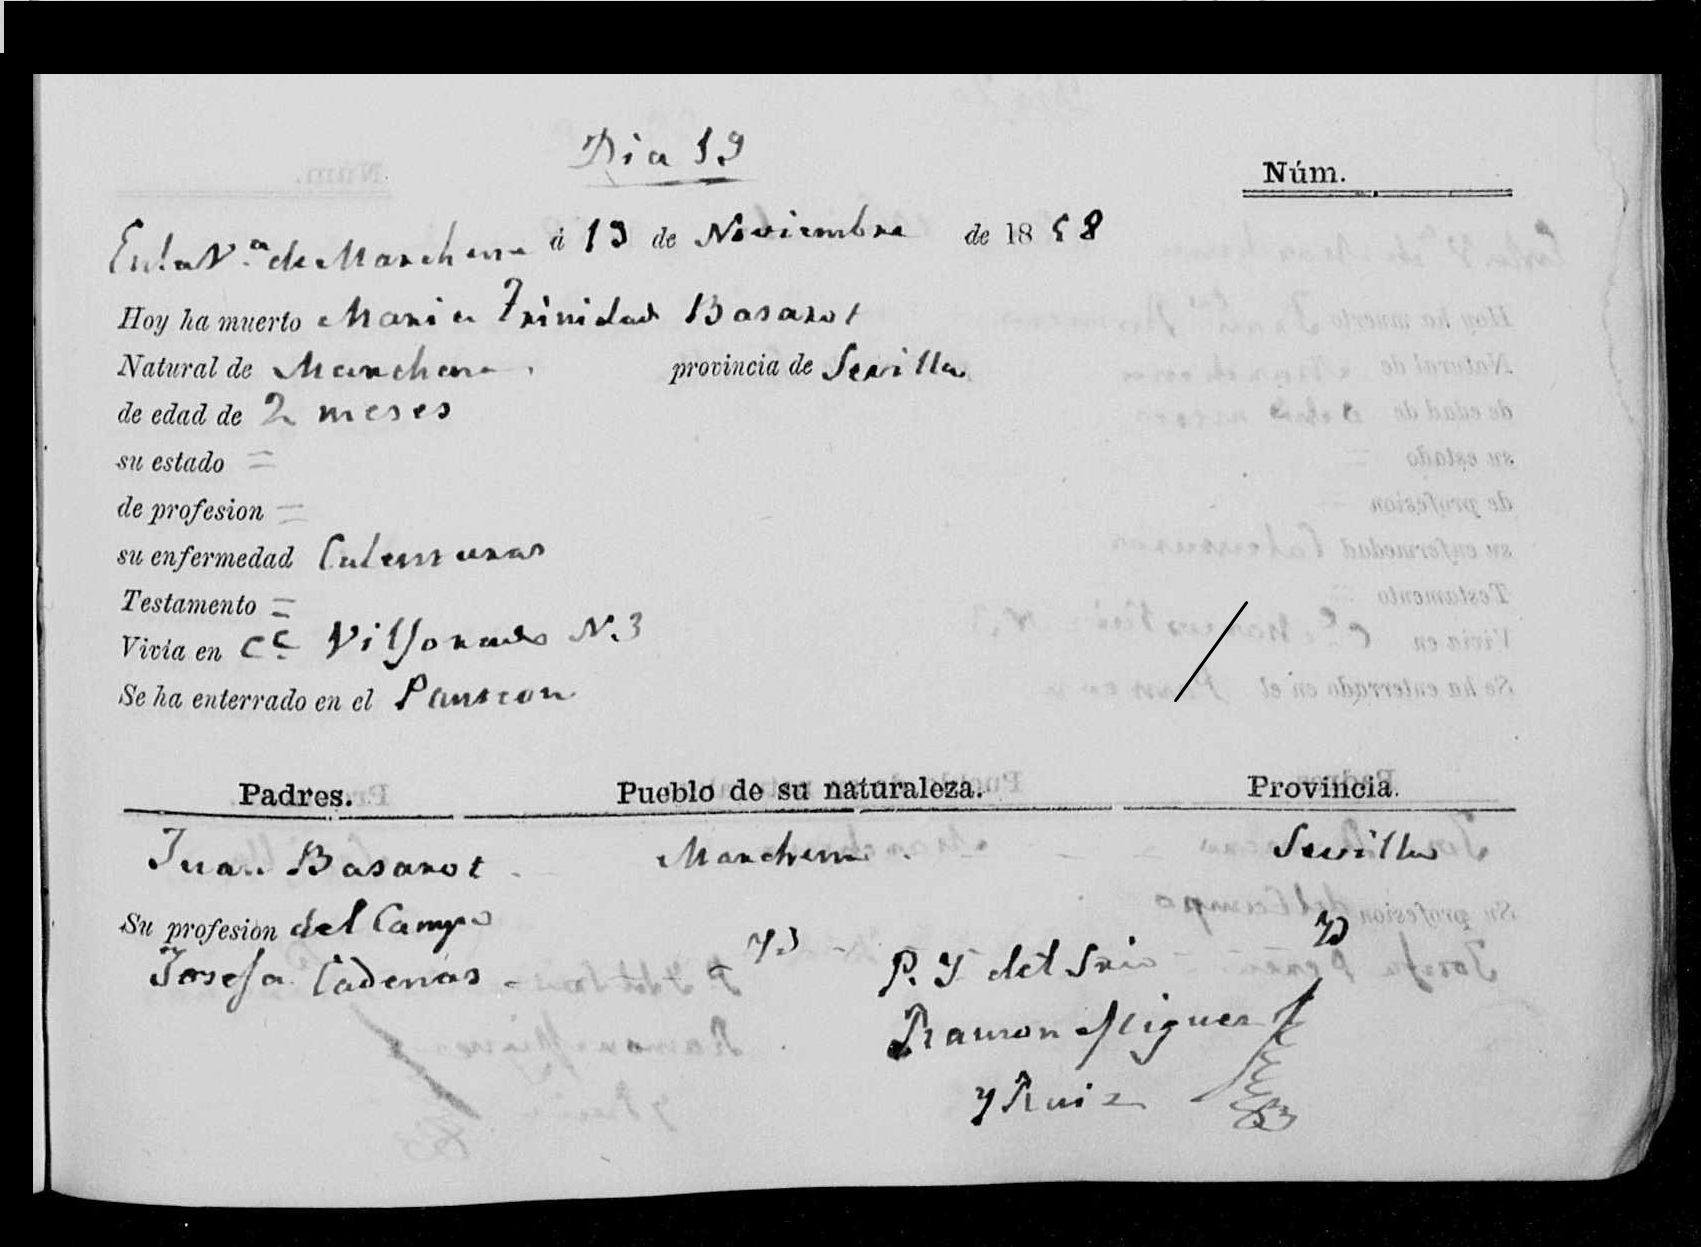 Dia 19
Núm.
En la V.ª de Marchena á 19 de Noviembre de 1858
Hoy ha muerto Maria Trinidad Basarot
Natural de Marchena provincia de Sevilla
de edad de 2 meses
su estado =
de profesion =
su enfermedad Calenturas
Testamento =
Vivia en N. 3
Se ha enterrado en el Panteon
Padres. Pueblo de su naturaleza. Provincia.
Juan Basarot Marchena Sevilla
Su profesion del Campo
Josefa Cadenas P. Y del Srio
Ramon Miguez
y Ruiz